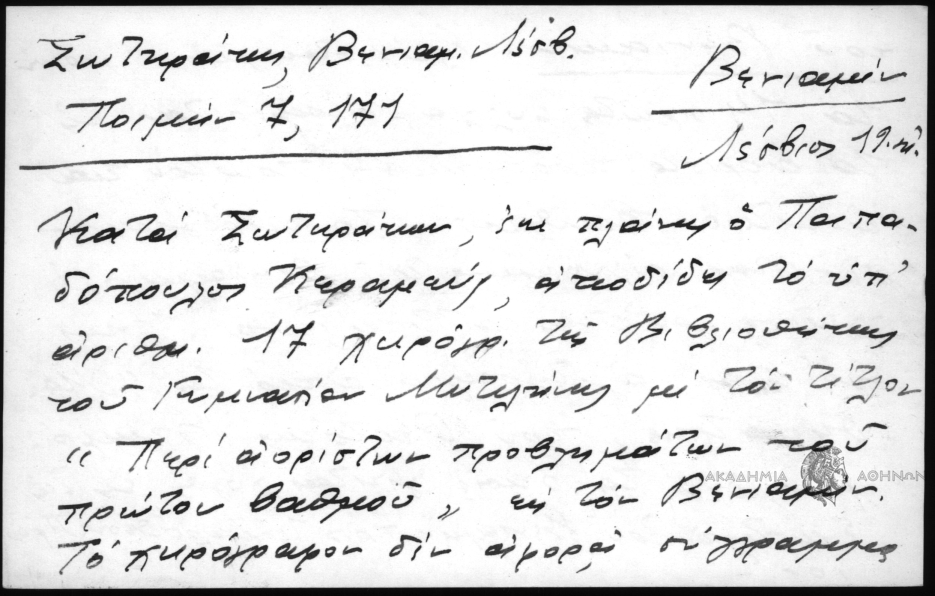 Σωτηράκης, Βενιαμ. Λέσβ.
Ποιμήν 7, 171
Βενιαμίν
Λέσβιος 19.
Κατά Σωτηράκην, ἐκ πλάνης ὁ Παπα-
δόπουλος Κεραμεύς, ἀποδίδει τό ὑπ'
ἀριθμ. 17 χειρόγρ. τῆς Βιβλιοθήκης
τοῦ Γυμνασίου Μυτιλήνης μέ τόν τίτλον
"Περί ἀορίστων προβλημάτων τοῦ
πρώτου βαθμοῦ" εἰς τόν Βενιαμίν.
Τό χειρόγραφον δέν ἀφορᾶ σύγγραμμα
ΑΚΑΔΗΜΙΑ ΑΘΗΝΩΝ